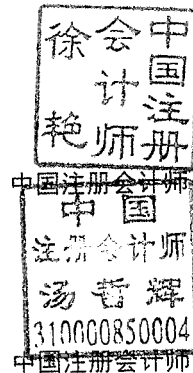 中国注册
会计师
徐艳
中国注册会计师
中国
注册会计师
汤哲辉
310000850004
中国注册会计师